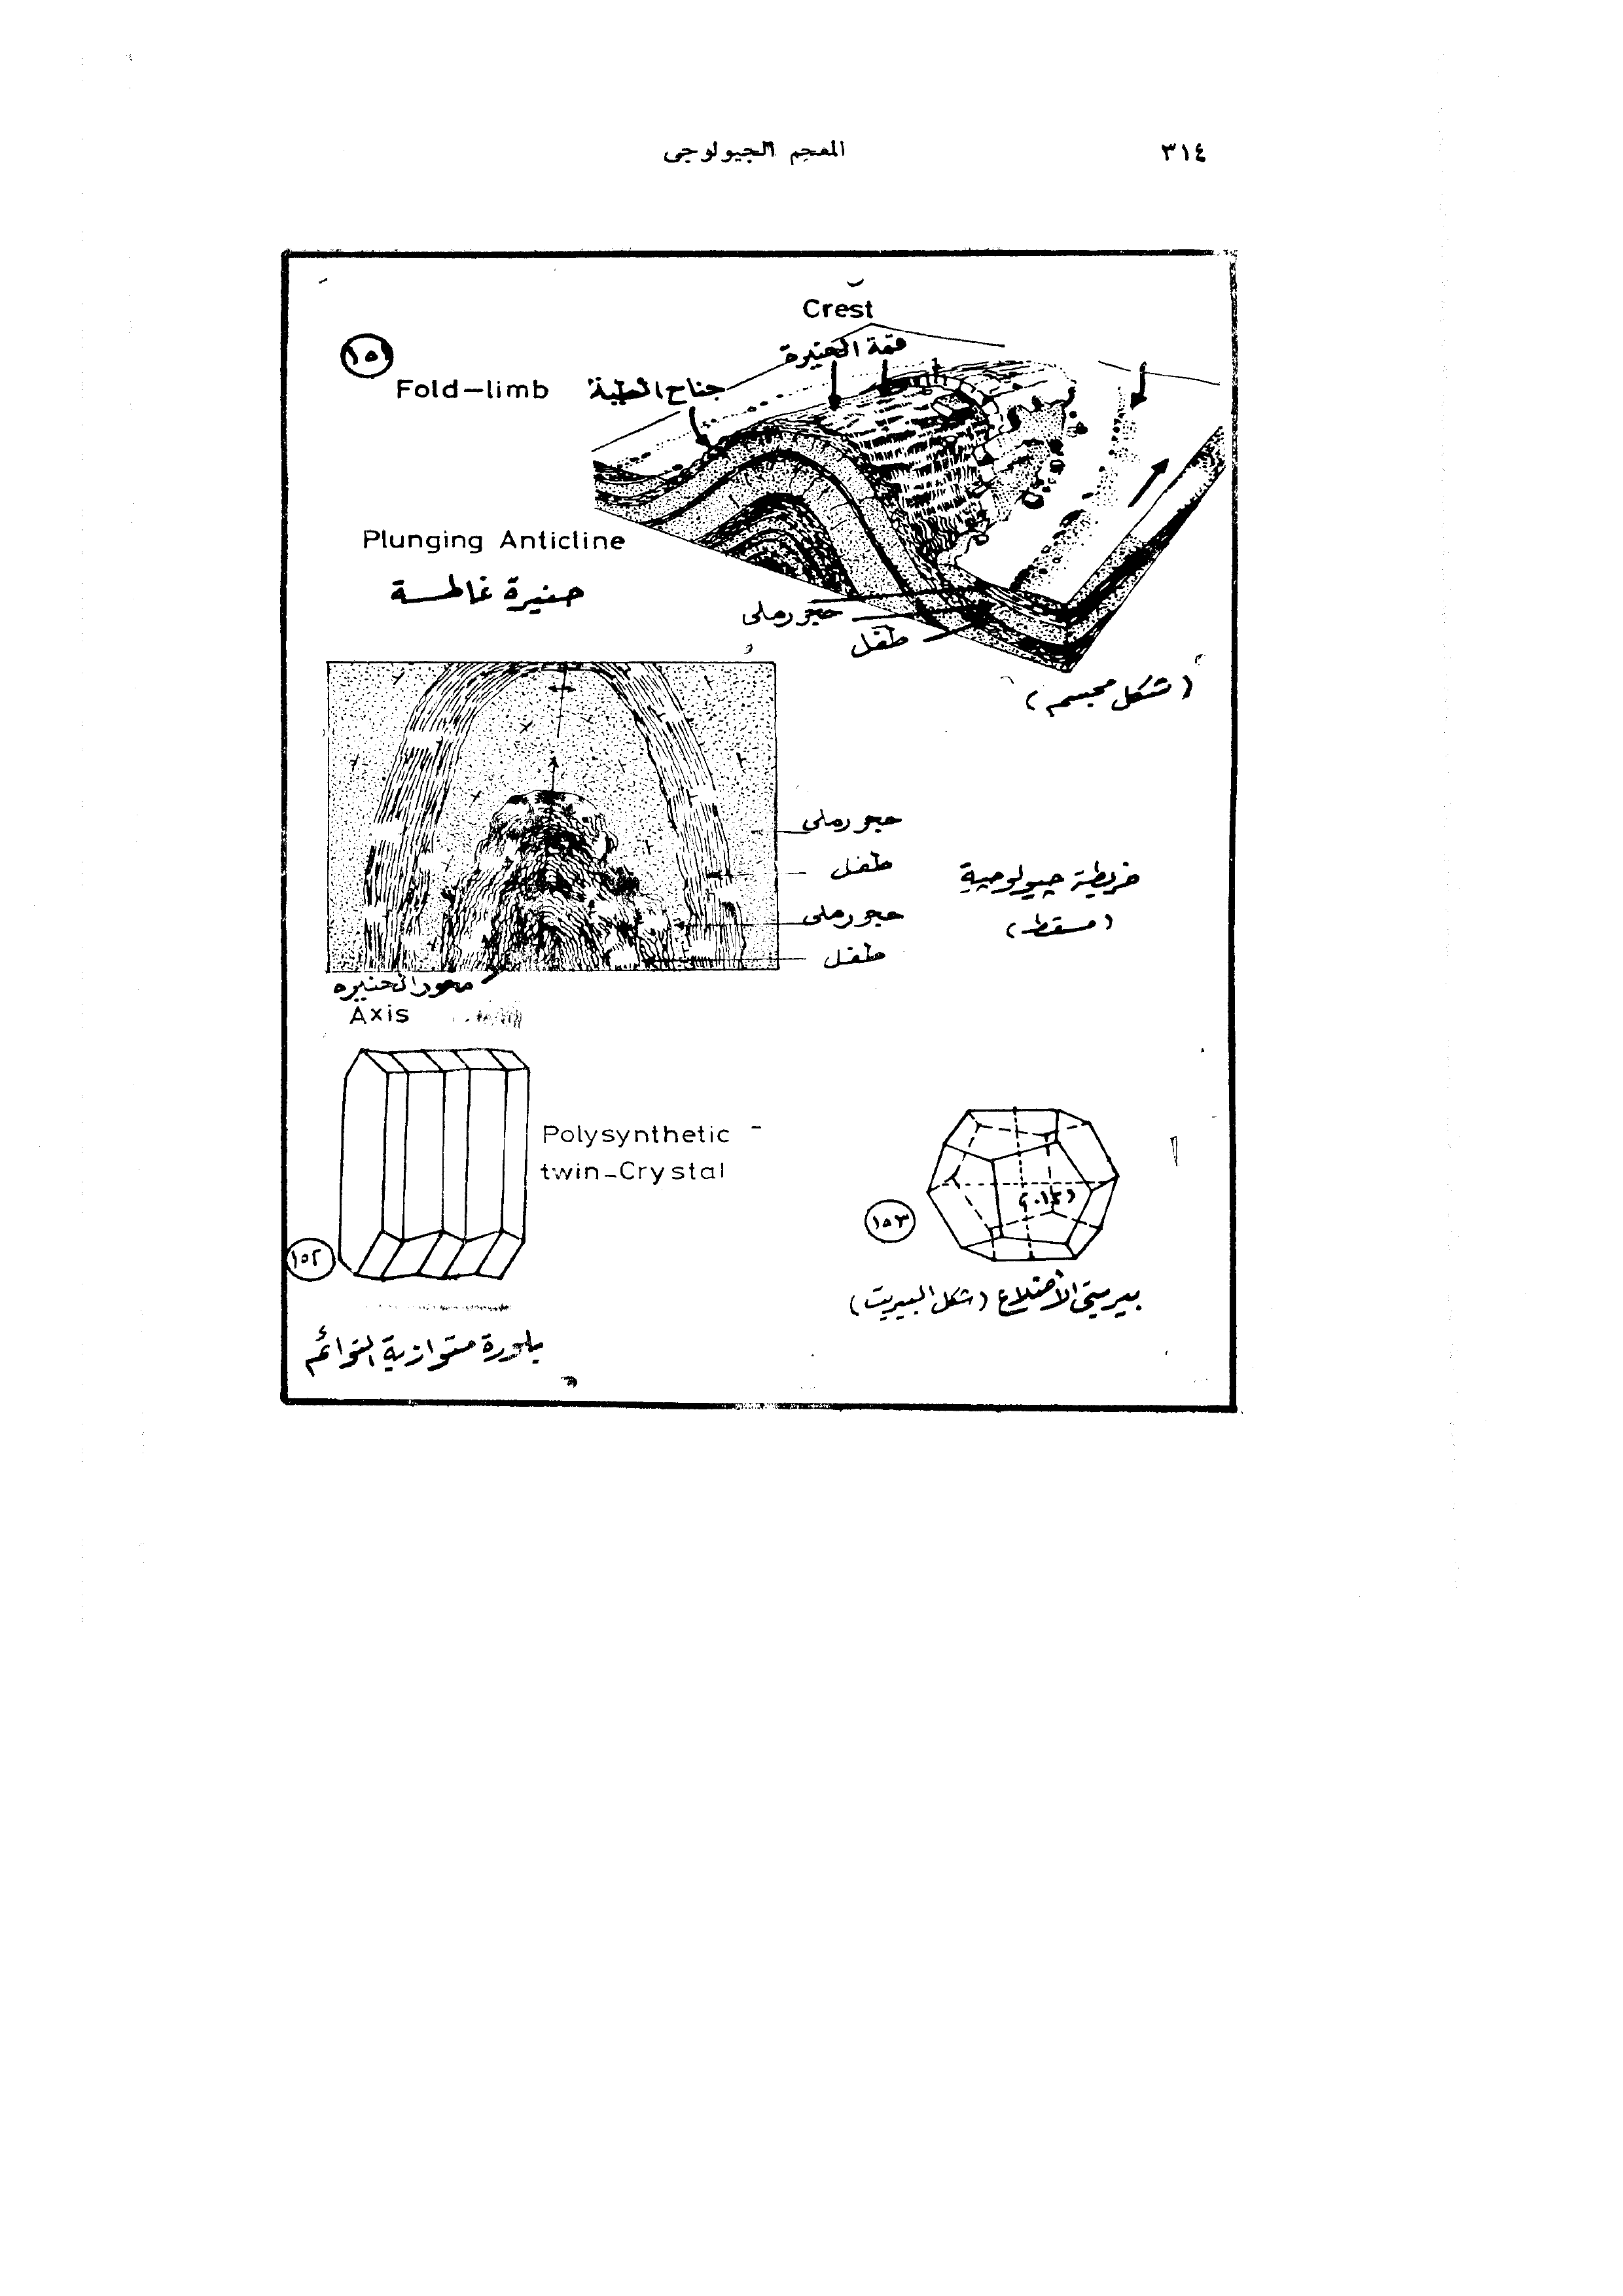 ٣١٤
المعجم الجيولوجى
Crest
قمة الحنيرة
١٥١
Fold-limb جناح الطية
Plunging Anticline
حنيرة غاطسة
حجر رملى
طفل
(شكل مجسم)
حجر رملى
طفل
حجر رملى
طفل
خريطة جيولوجية
(مسقط)
محور الحنيره
Axis
Polysynthetic
twin-Crystal
١٥٢
بلورة متوازية التوائم
١٥٣
بيريتى الأضلاع (شكل البيريت)